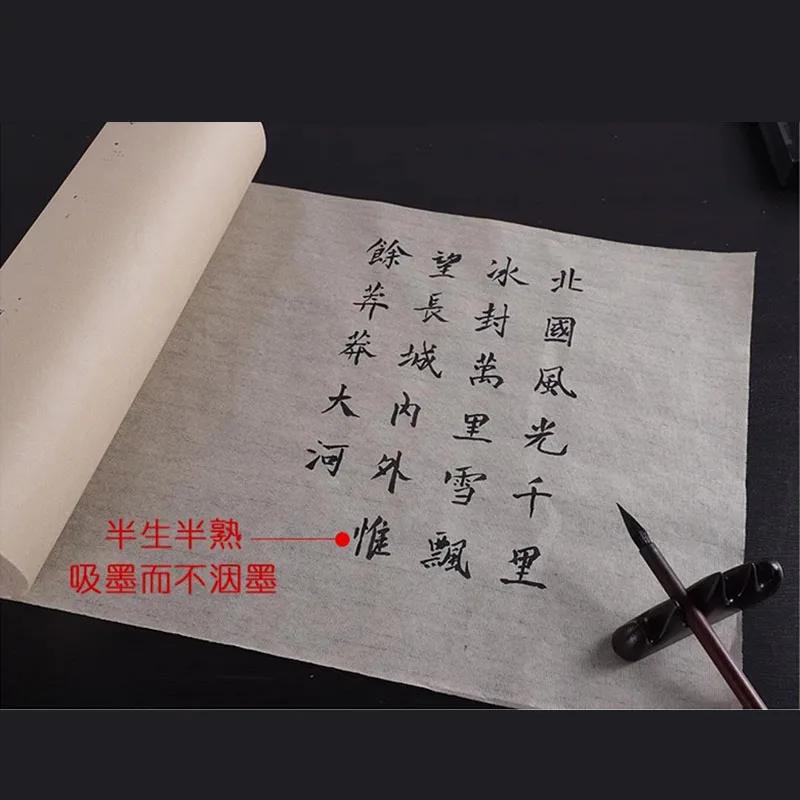 北國風光千里
冰封萬里雪飄
望長城内外惟
餘莽莽大河
半生半熟
吸墨而不洇墨